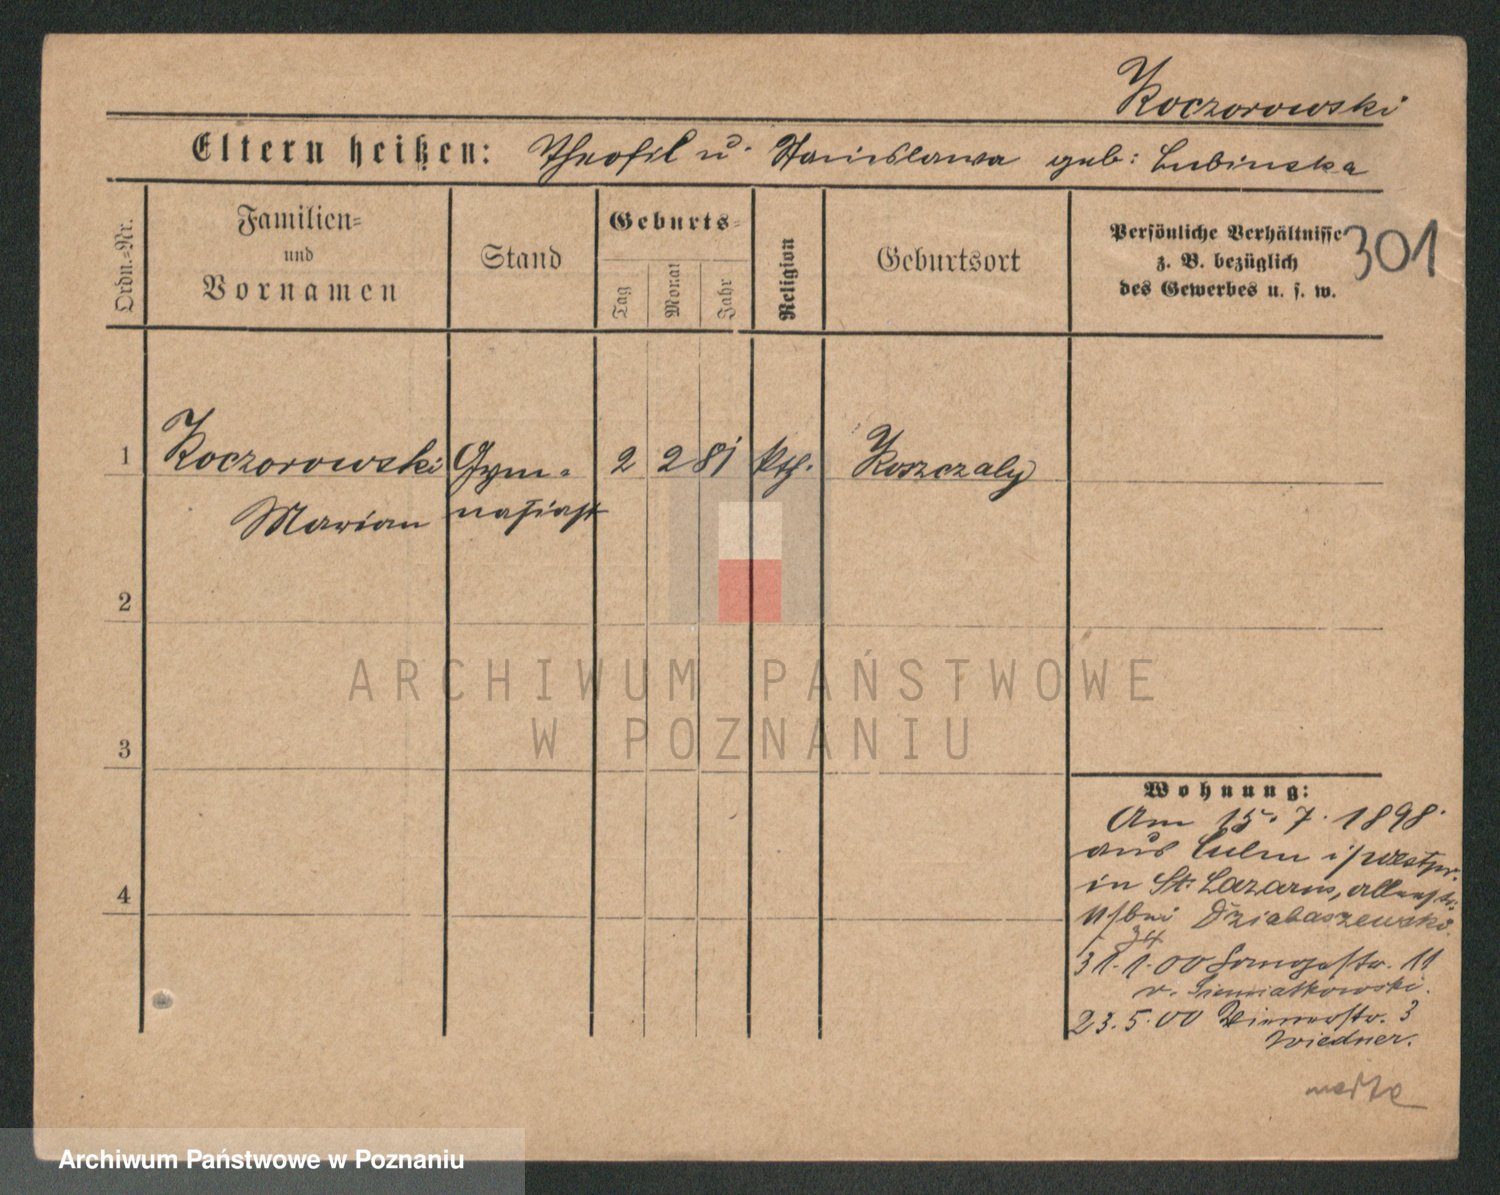 Koczorowski
Eltern heißen: Theofil u. Stanislawa geb: Lubinska
Ordn.-Nr.
Familien-
und
Vornamen
Stand
Geburts-
Tag
Monat
Jahr
Religion
Geburtsort
Persönliche Verhältnisse
z. B. bezüglich
des Gewerbes u. s. w.
301
1 Koczorowski Gym- 2 2 81 kth. Koszczaly
Marian nasiast
2
3
4
ARCHIWUM PAŃSTWOWE
W POZNANIU
Wohnung:
Am 15.7.1898.
aus Culm i/Westpr.
in St. Lazarus,
11/bei Dziabaszewski.
34
31.1.00 11
v. Siemiatkowski.
23.5.00 3
Wiedner.
Archiwum Państwowe w Poznaniu